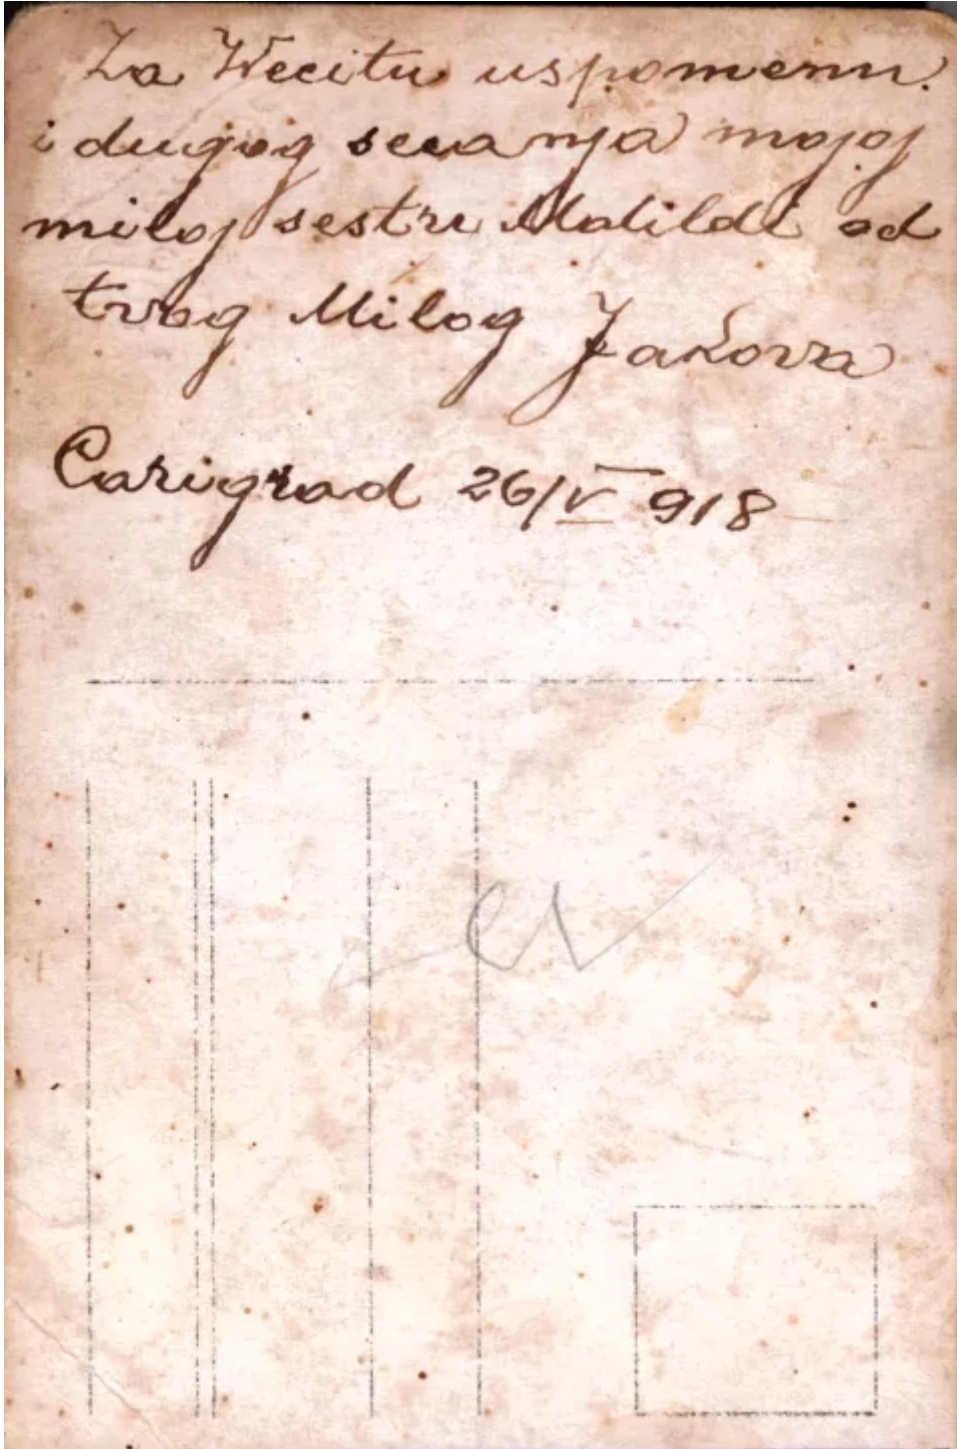 Za Wecitu uspomenu.
i dugog secanja mojoj
miloj sestri Matildi od
tvog Milog Jakova
Carigrad 26/V 918